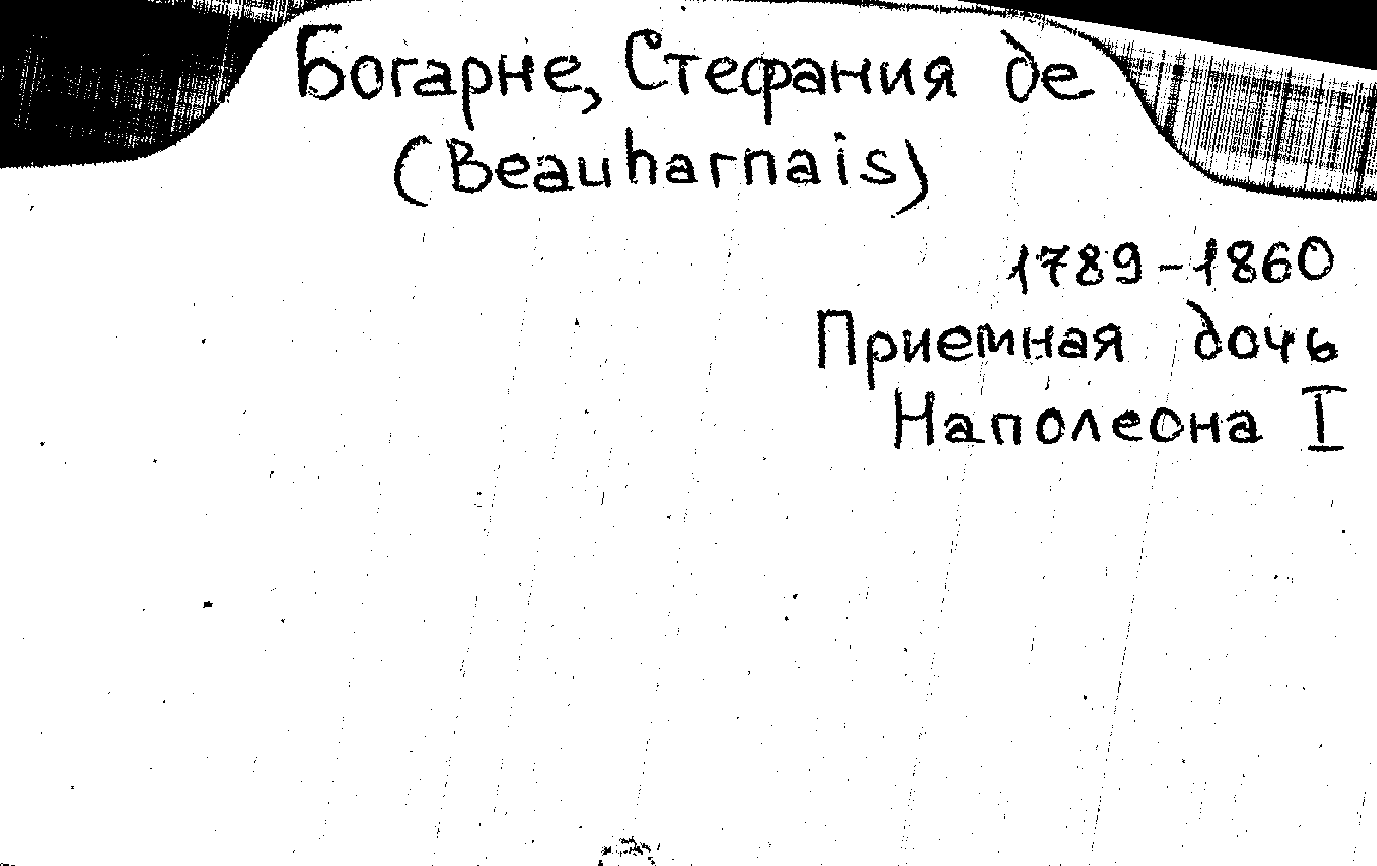 Богарне, Стефания де
(Beauharnais)
1789-1860
Приемная дочь
Наполеона I